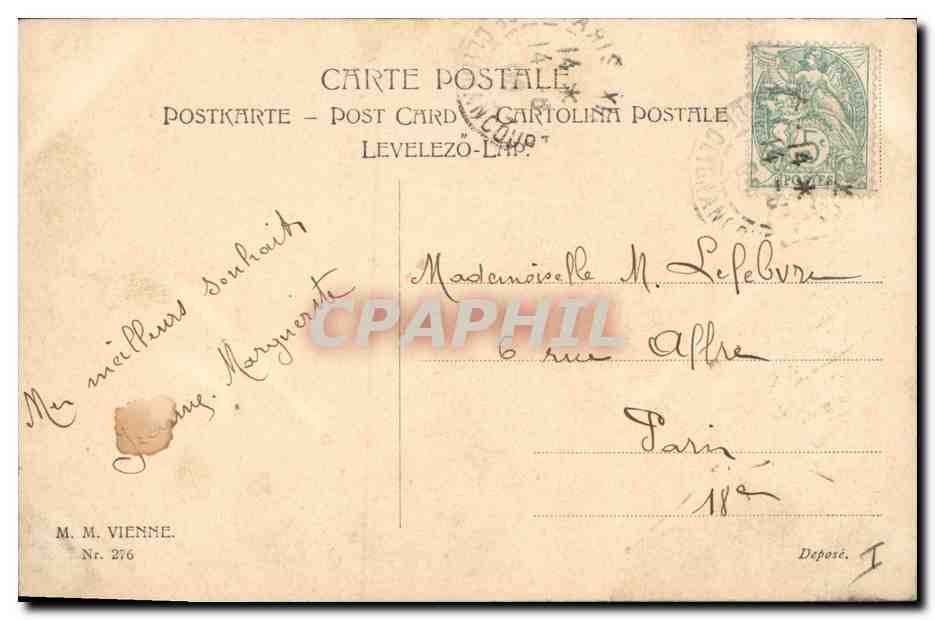 CARTE POSTALE
POSTKARTE – POST CARD – CARTOLINA POSTALE
LEVELEZŐ-LAP.
Mes meilleurs souhaits
Jeanne. Marguerite
Mademoiselle M. Lefebvre
6 rue Affre
Paris
18e
CPAPHIL
5c
POSTES
M. M. VIENNE.
Nr. 276
Deposé.
I